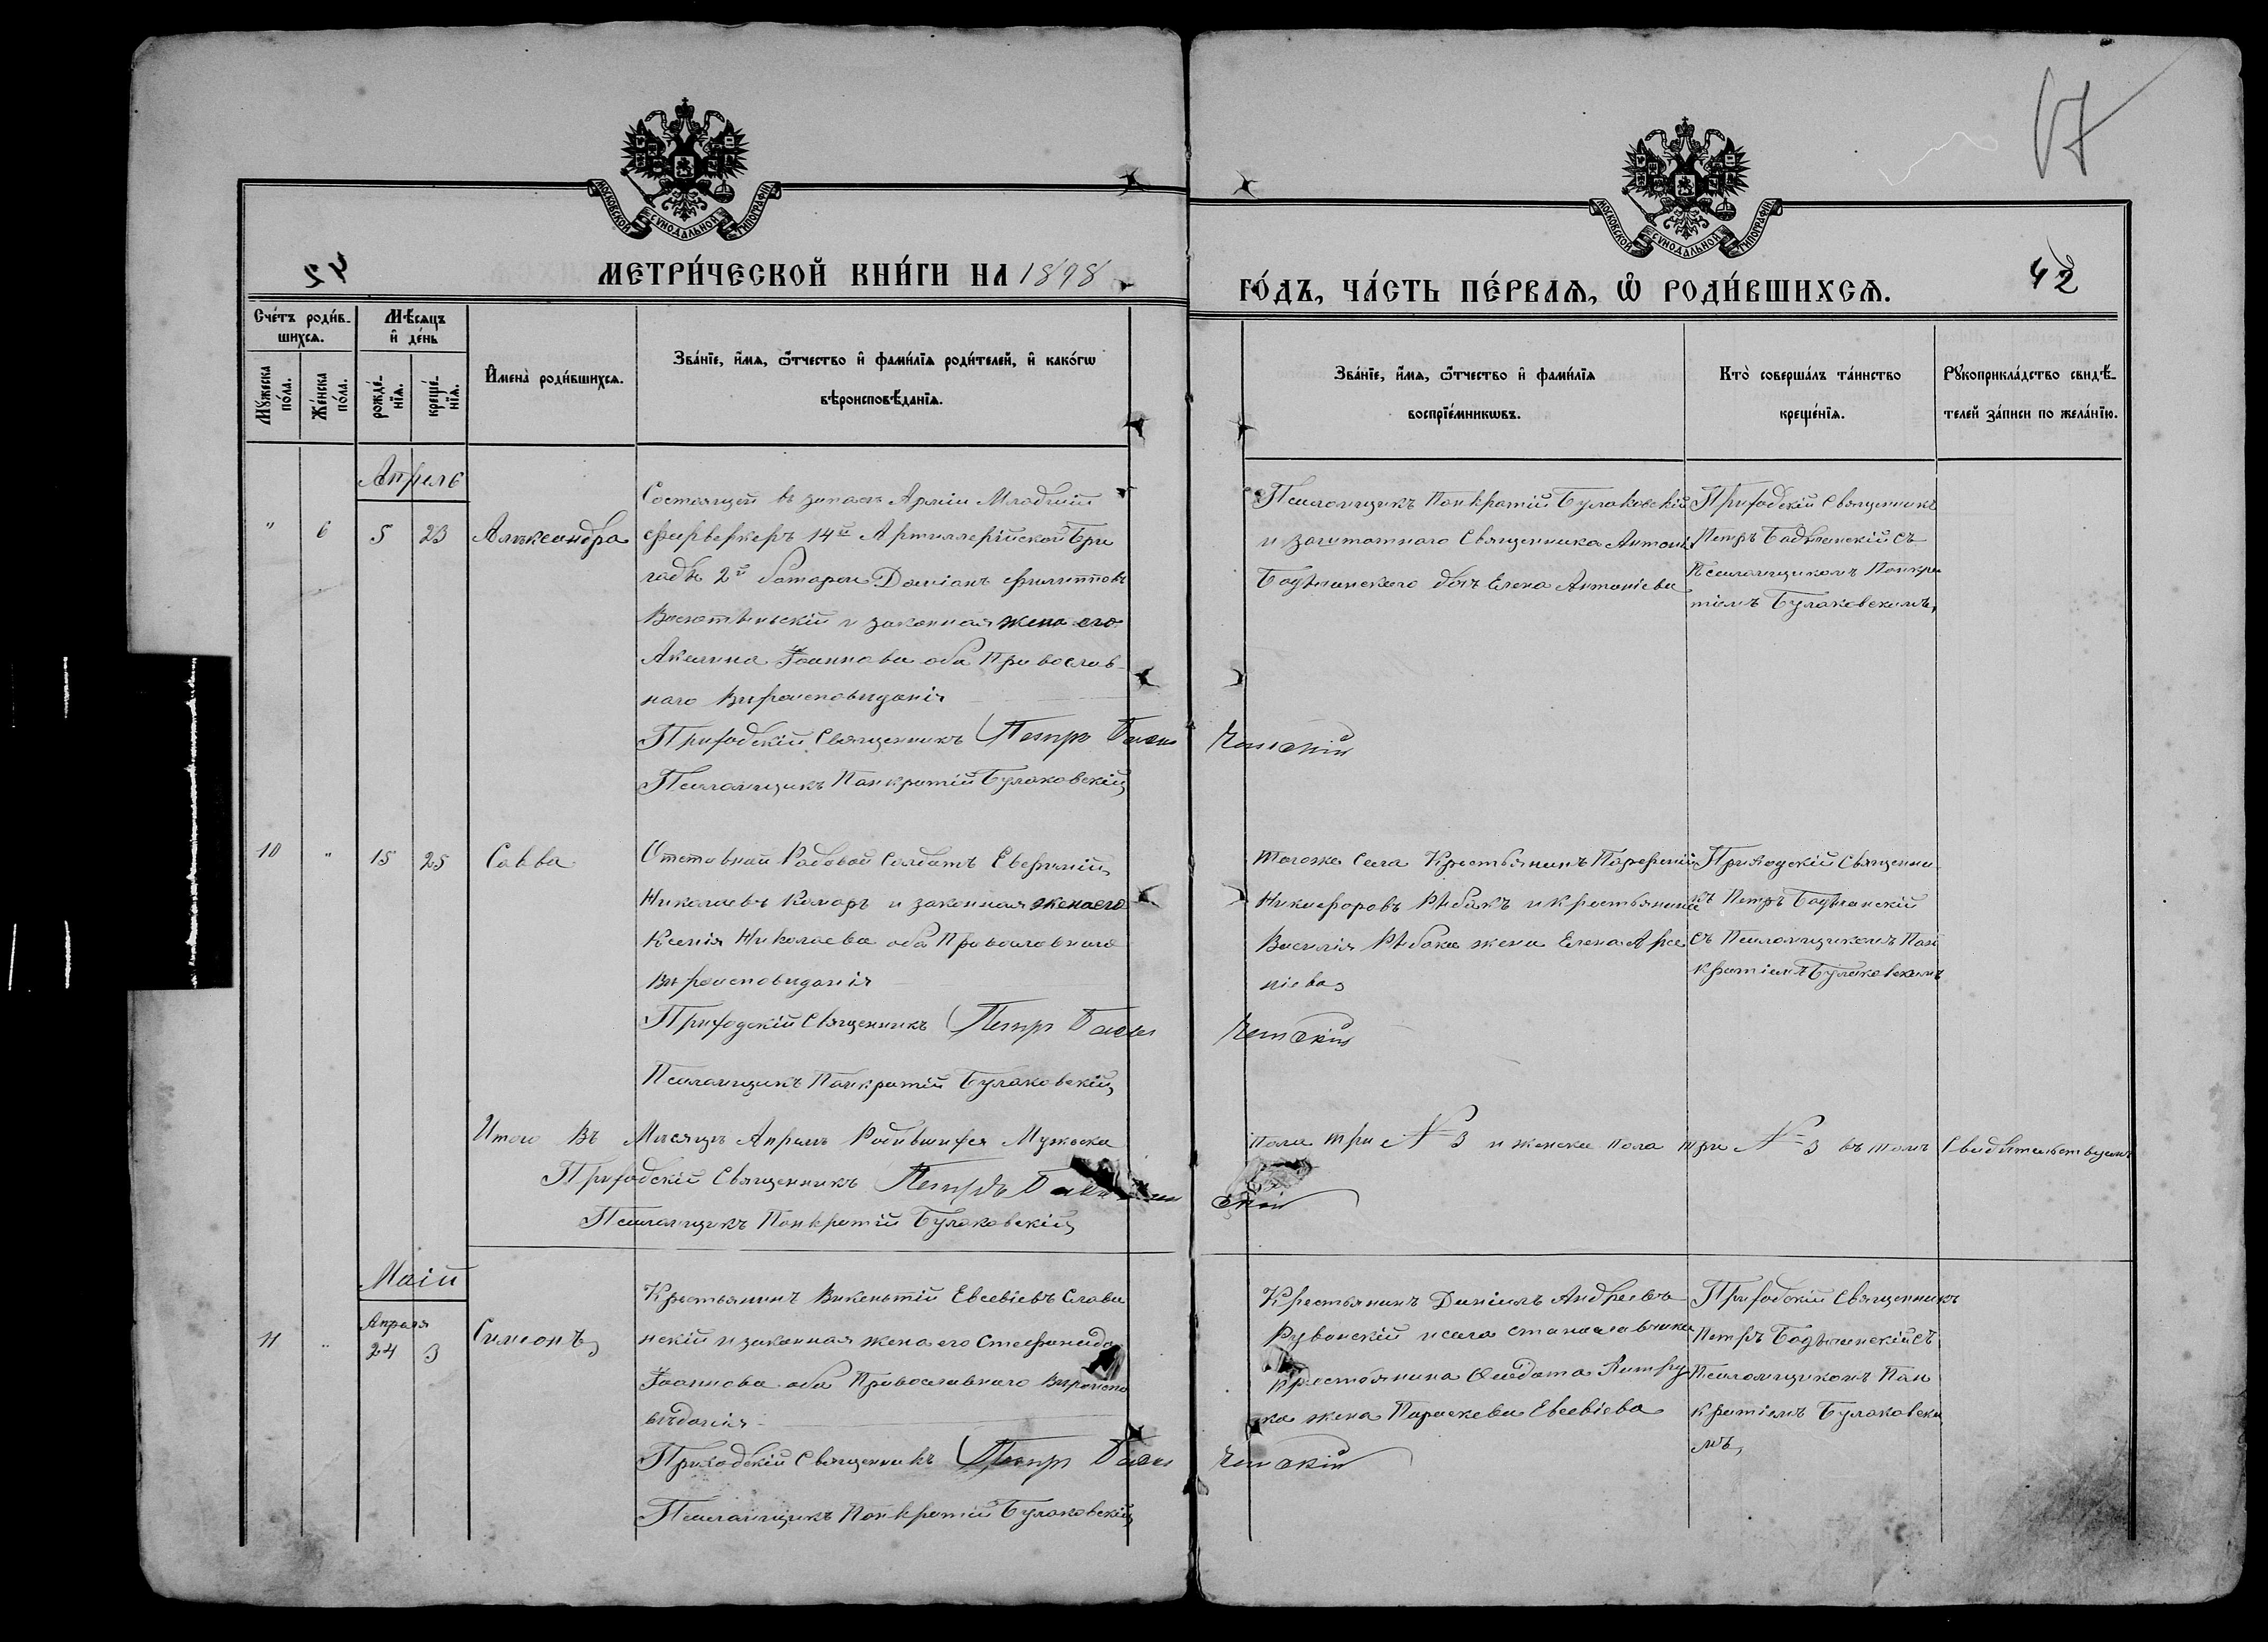 67
МОСКОВСКОЙ СѴНОДАЛЬНОЙ ТИПОГРАФІИ
МОСКОВСКОЙ СѴНОДАЛЬНОЙ ТИПОГРАФІИ
42
МЕТРИ́ЧЕСКОЙ КНИ́ГИ НА 1898
ГО́ДЪ, ЧА́СТЬ ПЕ́РВАЯ, Ѡ РОДИ́ВШИХСЯ.
42
Сче́тъ роди́в-
шихся.
Мѣсяцъ
и҆ де́нь
Мꙋ́жеска
по́ла.
Же́нска
по́ла.
рожде́-
нїя.
креще́-
нїя.
И҆мена̀ роди́вшихся.
Зва́нїе, и҆́мя, ѻ҆́тчество и҆ фами́лїя роди́телей, и҆ како́гѡ
вѣроисповѣ́данїя.
Зва́нїе, и҆́мя, ѻ҆́тчество и҆ фами́лїя
воспрїе́мникѡвъ.
Кто̀ соверша́лъ та́инство
креще́нїя.
Рꙋкоприкла́дство свидѣ́-
телей за́писи по жела́нїю.
Апрель
" 6 5 23 Александра
Состоящей въ запасѣ Арміи Младшій
фейрверкеръ 14й Артиллерійской Бри
гады 2й батареи Даміанъ Филипповъ
и законная жена его
Акилина Іоаннова оба Православ-
наго Вироисповиданія
Приходскій Священникъ Петръ
Псаломщикъ Панкратій Булаковскій
Псаломщикъ Панкратій Булаковскій
и заштатнаго Священника Антонія
дочь Елена Антоніева
Приходскій Священникъ
Петръ съ
Псаломщикомъ Панкра
тіемъ Булаковскимъ,
10 " 15 25 Савва
Отставной Радовой Солдатъ Евфимій
Николаевъ Комаръ и законная жена его
Ксенія Николаева оба Православнаго
Вироисповиданія
Приходскій Священникъ Петръ
Псаломщикъ Панкратій Булаковскій
Тогоже Села Крестьянинъ Парфеній
Никифоровъ Рѣбакъ и крестьянина
Василія Рѣбака жена Елена Арсе
ніева
Приходскій Священни
къ Петръ
съ Псаломщикомъ Пан
кратіемъ Булаковскимъ
Итого Въ Мѣсяцѣ Апрелѣ Родившихся Мужеска
пола три № 3 и женска пола три № 3 въ томъ Свидѣтельствуемъ
Приходскій Священникъ Петръ
Псаломщикъ Панкратій Булаковскій
Маій
Апреля
11 " 24 3 Симеонъ
Крестьянинъ Викентій Евсевіевъ Слави
нскій и законная жена его Стефанида
Іоаннова оба Православнаго Вироиспо
вѣданія
Приходскій Священникъ Петръ
Псаломщикъ Панкратій Булаковскій
Крестьянинъ Даніилъ Андреевъ
и села Станиславчика
крестьянина Феодота
ка жена Параскева Евсевіева
Приходскій Священникъ
Петръ съ
Псаломщикомъ Пан
кратіемъ Булаковски
мъ,